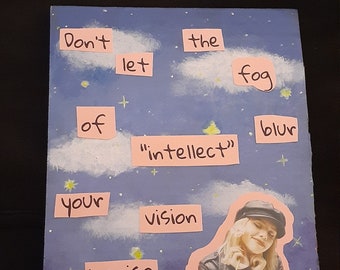 Don't the
let fog
of blur
"intellect"
your
vision